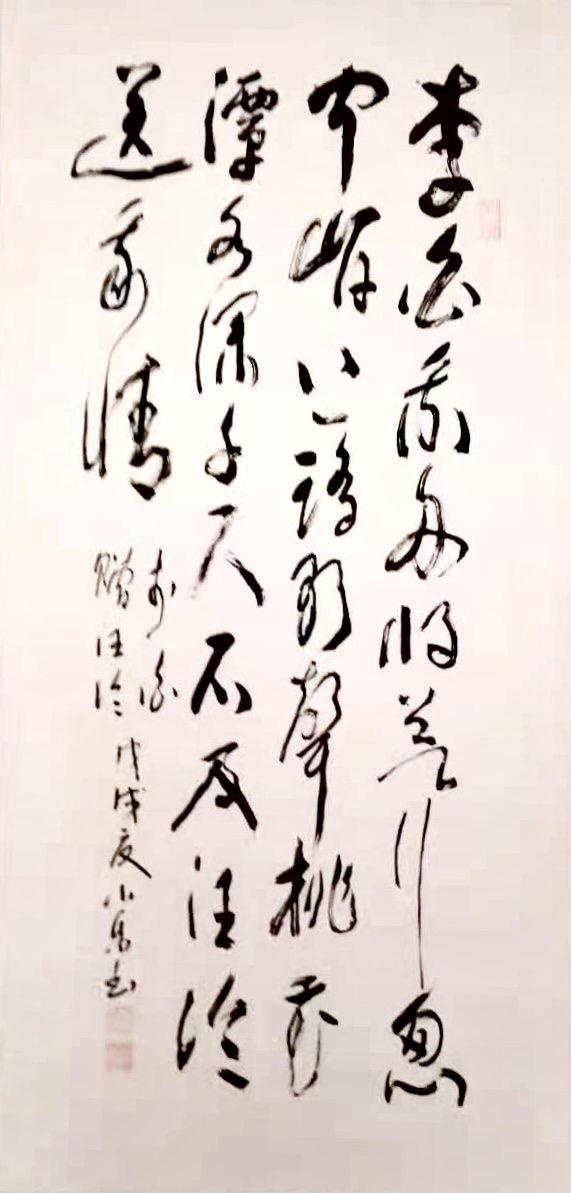 李白乘舟将欲行忽
闻岸上踏歌聲桃花
潭水深千尺不及汪伦
送我情
李白
赠汪伦 戊戌夏小书